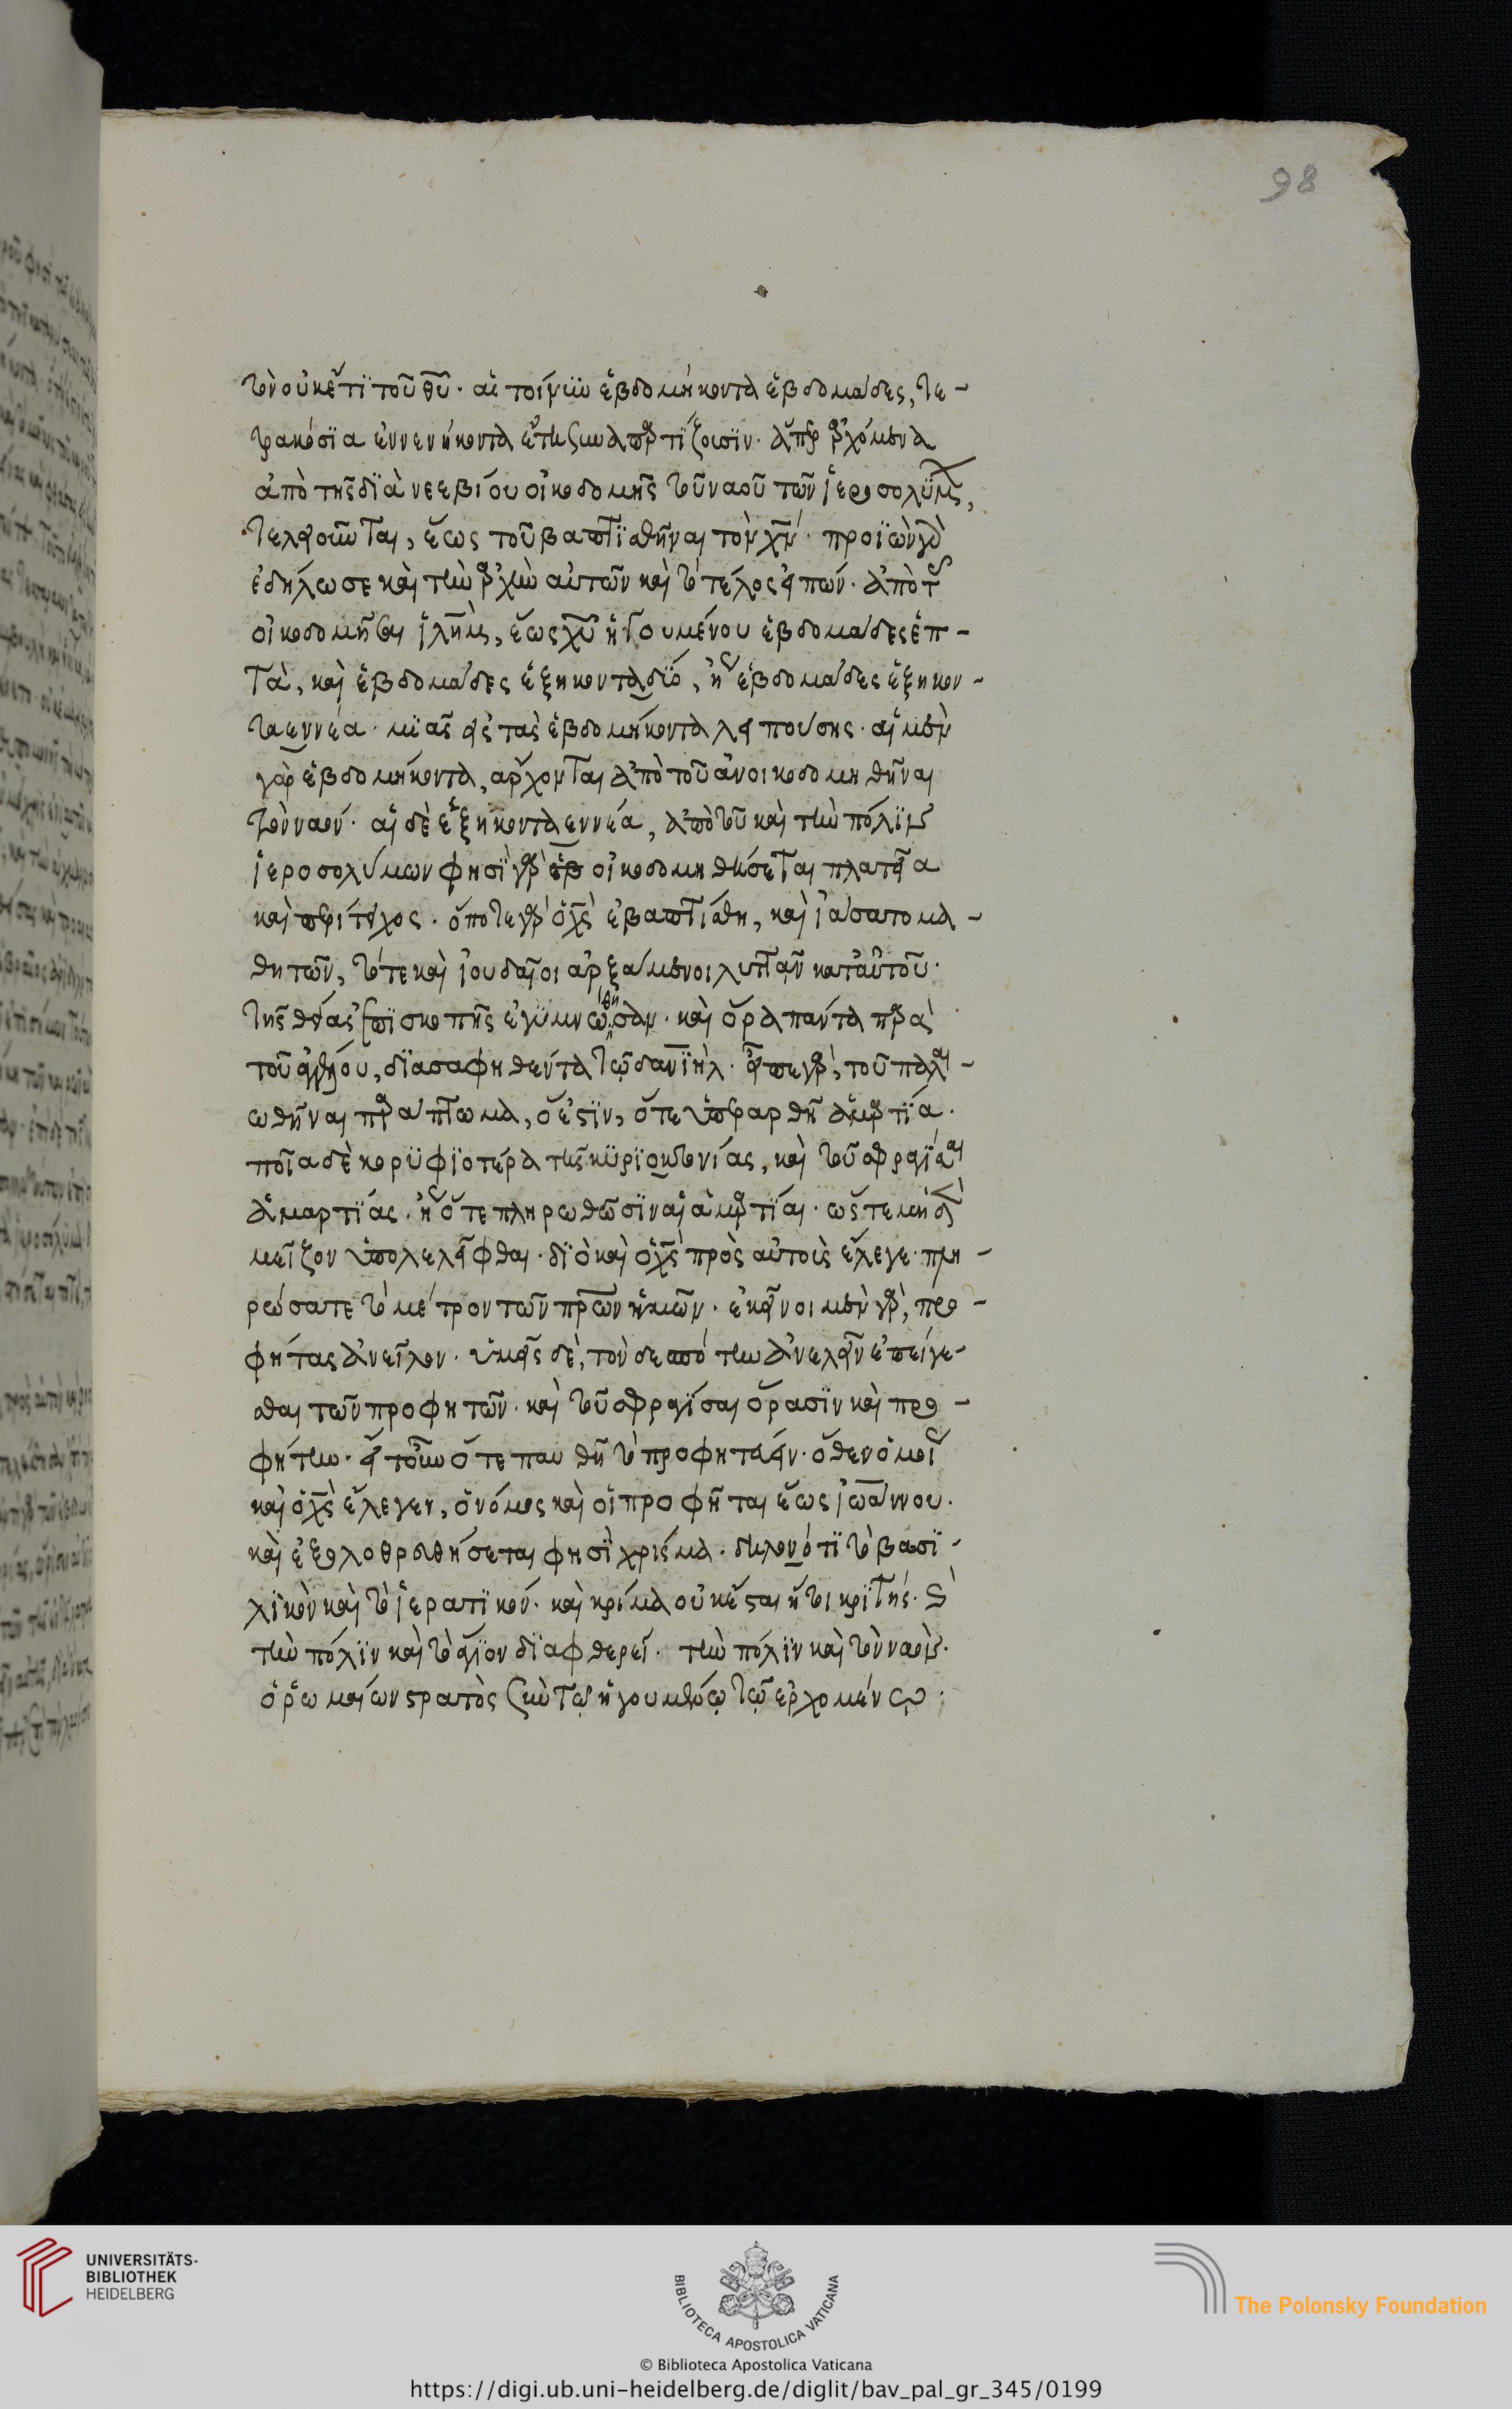 98
τὸν οὐκέτι τοῦ θυ̅. αἱ τοίνυν ἑβδομήκοντα ἑβδομάδες, τε-
τρακόσια ἐννενήκοντα ἔτη συναπαρτίζουσιν. ἅπερ ἀρχόμενα
ἀπὸ τῆς διὰ νεεμίου οἰκοδομῆς τοῦ ναοῦ τῶν ἱεροσολύμων,
τελειοῦνται, ἕως τοῦ βαπτισθῆναι τὸν χν̅. προϊὼν γὰρ
ἐδήλωσε καὶ τὴν ἀρχὴν αὐτῶν καὶ τὸ τέλος εἰπών. ἀπὸ τοῦ
οἰκοδομῆσαι ἰλη̅μ, ἕως χυ̅ ἡγουμένου ἑβδομάδες ἑπ-
τὰ, καὶ ἑβδομάδες ἑξηκονταδύο, ἤγουν ἑβδομάδες ἑξηκον-
ταεννέα. μιᾶς εἰς τὰς ἑβδομήκοντα λειπούσης. αἱ μὲν
γὰρ ἑβδομήκοντα, ἄρχονται ἀπὸ τοῦ ἀνοικοδομηθῆναι
τὸν ναόν. αἱ δὲ ἑξηκονταεννέα, ἀπὸ τοῦ καὶ τὴν πόλιν
ἱεροσολύμων φησὶ γὰρ οἰκοδομηθήσεται πλατεῖα
καὶ περίτειχος. ὁπότε γὰρ ὁ χς̅ ἐβαπτίσθη, καὶ ἰάσατο μα-
θητῶν, τότε καὶ ἰουδαῖοι ἀρξάμενοι λυττᾶν κατ' αὐτοῦ.
τῆς θείας ἐπισκοπῆς ἐγυμνώθησαν. καὶ ὅρα πάντα παρὰ
τοῦ ἀγγέλου, διασαφηθέντα τῷ δανιήλ. εἶπε γὰρ, τοῦ παλαι-
ωθῆναι παράπτωμα, ὅ ἐστιν, ὅτε ὑπεραρθῇ ἁμαρτία.
ποῖα δὲ κορυφιοτέρα τῆς κυριοκτονίας, καὶ τοῦ σφραγίσαι
ἁμαρτίας. ἤγουν ὅτε πληρωθῶσιν αἱ ἁμαρτίαι. ὥστε μηδὲν
μεῖζον ὑπολελεῖφθαι. διὸ καὶ ὁ χς̅ πρὸς αὐτοὺς ἔλεγε. πλη-
ρώσατε τὸ μέτρον τῶν πρω̅ν ἡμῶν. ἐκεῖνοι μὲν γὰρ, προ-
φήτας ἀνεῖλον. ὑμεῖς δὲ, τὸν δεσπότην ἀνελεῖν ἐπείγε-
σθαι τῶν προφητῶν. καὶ τοῦ σφραγίσαι ὅρασιν καὶ προ-
φήτην. εἴτουν ὅτε παυθῇ τὸ προφητεύειν. ὅθεν ὁμοίως
καὶ ὁ χς̅ ἔλεγεν, ὁ νόμος καὶ οἱ προφῆται ἕως ἰωάννου.
καὶ ἐξολοθρευθήσεται φησὶ χρίσμα. δηλονότι τὸ βασι-
λικὸν καὶ τὸ ἱερατικόν. καὶ κρίμα οὐκ ἔσται ἤτοι κριτής. καὶ
τὴν πόλιν καὶ τὸ ἅγιον διαφθερεῖ. τὴν πόλιν καὶ τὸν ναὸν.
ὁ ῥωμαίων στρατὸς σὺν τῷ ἡγουμένῳ τῷ ἐρχομένῳ.
UNIVERSITÄTS-
BIBLIOTHEK
HEIDELBERG
BIBLIOTECA APOSTOLICA VATICANA
The Polonsky Foundation
© Biblioteca Apostolica Vaticana
https://digi.ub.uni-heidelberg.de/diglit/bav_pal_gr_345/0199